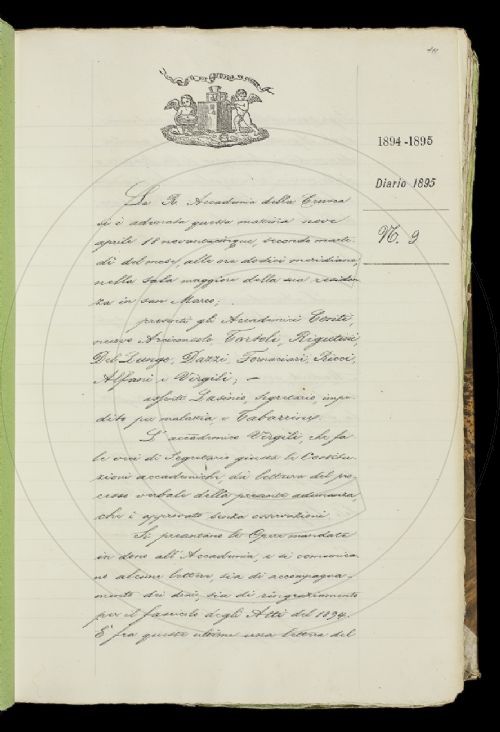 1894-1895
Diario 1895
N. 9
La R. Accademia della Crusca
si è adunata questa mattina nove
aprile 18 novantacinque, secondo marte-
dì del mese, alle ore dodici meridiane,
nella sala maggiore della sua residen-
za in San Marco;
presenti gli Accademici Conti,
nuovo Arciconsolo, Tortoli, Rigutini,
Del Lungo, Dazzi, Fornaciari, Ricci,
Alfani e Virgili; —
assenti Lasinio, Segretario, impe-
dito per malattia, e Tabarrini.
L'accademico Virgili, che fa
le veci di Segretario giusta le Costitu-
zioni accademiche, dà lettura del pro-
cesso verbale della adunanza,
che è approvato senza osservazioni.
Si presentano le Opere mandate
in dono all'Accademia, e si comunica-
no alcune lettere, sia di accompagna-
mento dei doni, sia di ringraziamento
per il fascicolo degli Atti del 1894.
E fra queste ultime una lettera del